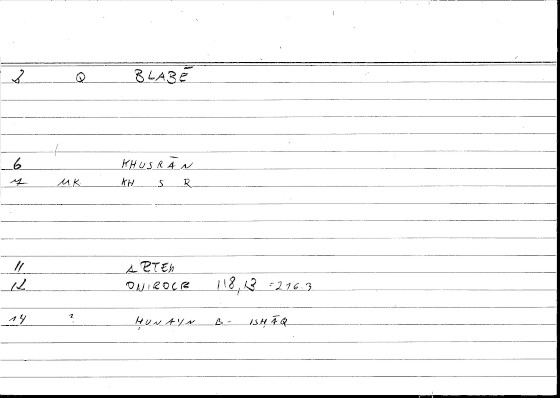 8 Q BLABĒ
6 KHUSRĀN
7 MK KH S R
11 ARTEM
12 ONIROCR 118,13 =216.3
14 ? ḤUNAYN B- ISḤĀQ